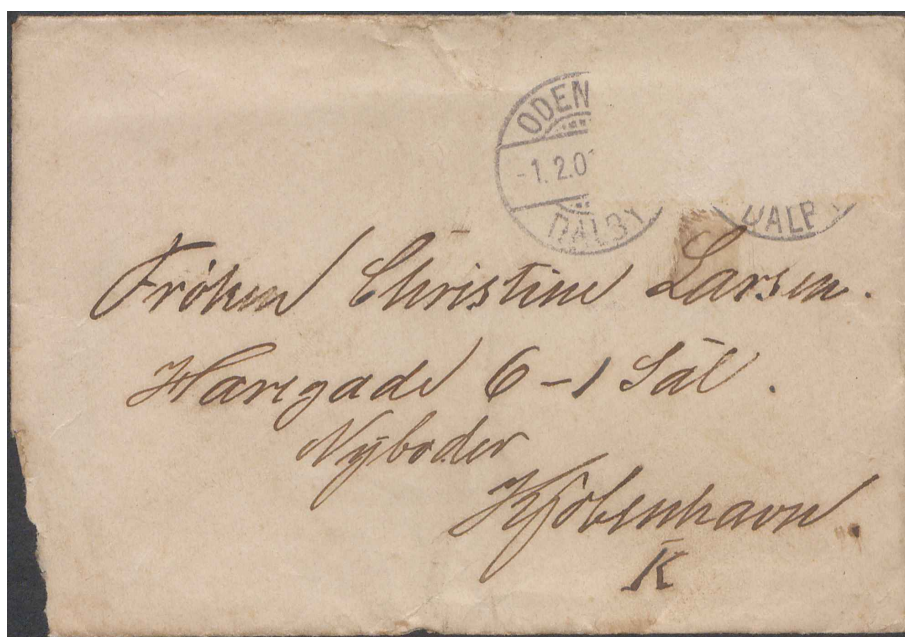 ODEN
-1.2.0
DALBY
DALBY
Frøken Christine Larsen.
Haregade 6-1 Sal.
Nyboder
Kjøbenhavn.
K